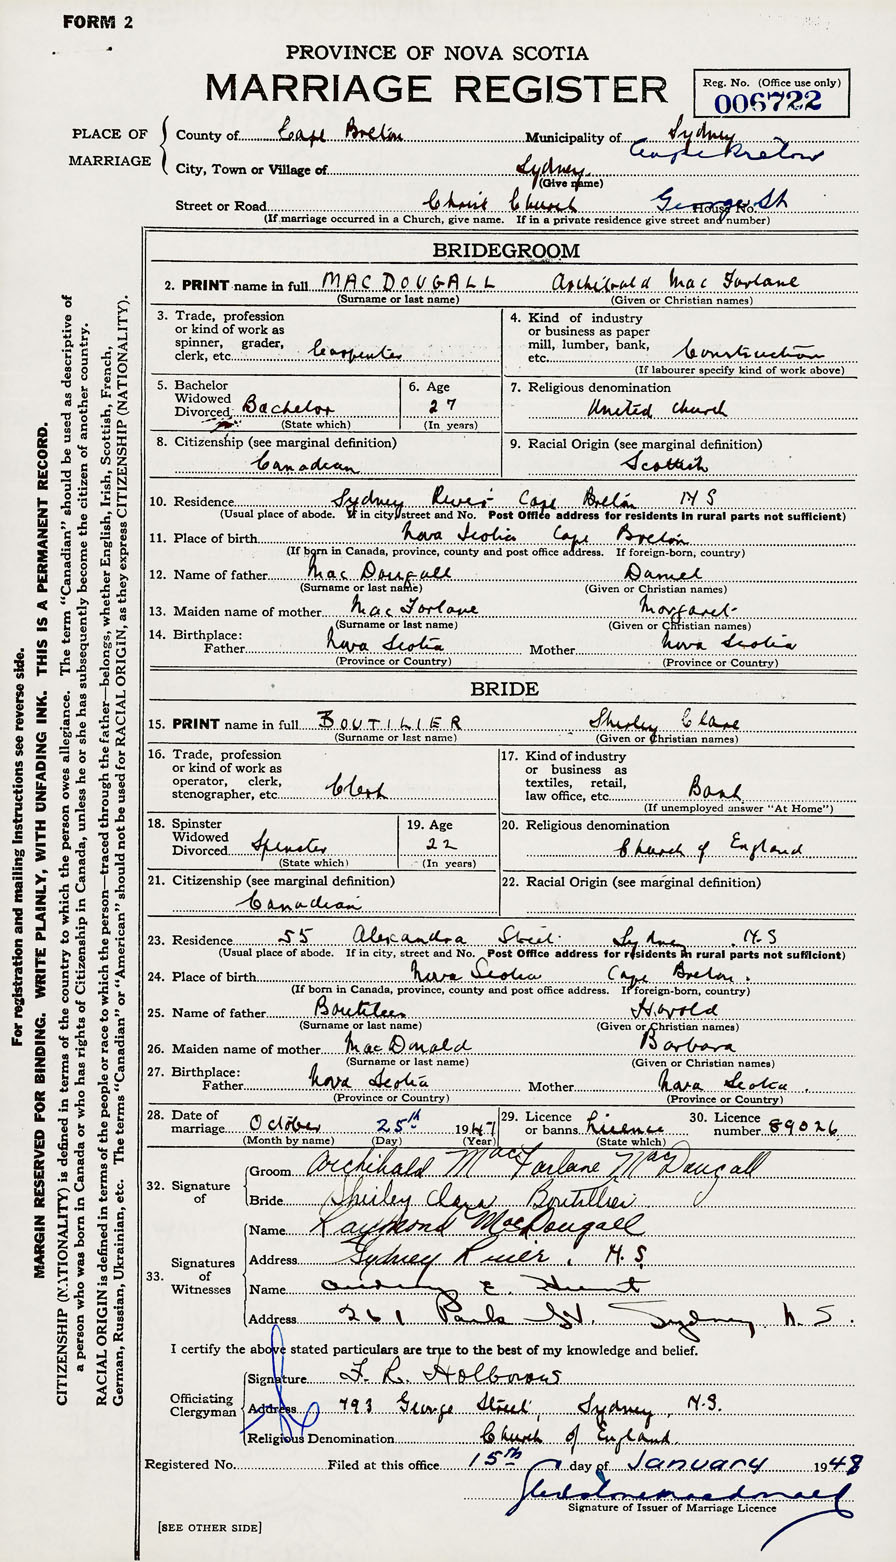 FORM 2
PROVINCE OF NOVA SCOTIA
MARRIAGE REGISTER
Reg. No. (Office use only)
006722
PLACE OF MARRIAGE
County of Cape Breton Municipality of Sydney
Cape Breton
City, Town or Village of Sydney
(Give name)
Street or Road Christ Church George St House No.
(If marriage occurred in a Church, give name. If in a private residence give street and number)
BRIDEGROOM
2. PRINT name in full MACDOUGALL Archibald MacFarlane
(Surname or last name) (Given or Christian names)
3. Trade, profession or kind of work as spinner, grader, clerk, etc. Carpenter
4. Kind of industry or business as paper mill, lumber, bank, etc. Construction
(If labourer specify kind of work above)
5. Bachelor Widowed Divorced Bachelor
(State which)
6. Age 27
(In years)
7. Religious denomination
United Church
8. Citizenship (see marginal definition)
Canadian
9. Racial Origin (see marginal definition)
Scottish
10. Residence Sydney River Cape Breton N S
(Usual place of abode. If in city, street and No. Post Office address for residents in rural parts not sufficient)
11. Place of birth Nova Scotia Cape Breton
(If born in Canada, province, county and post office address. If foreign-born, country)
12. Name of father MacDougall Daniel
(Surname or last name) (Given or Christian names)
13. Maiden name of mother MacFarlane Margaret
(Surname or last name) (Given or Christian names)
14. Birthplace:
Father Nova Scotia Mother Nova Scotia
(Province or Country) (Province or Country)
BRIDE
15. PRINT name in full BOUTILIER Shirley Clare
(Surname or last name) (Given or Christian names)
16. Trade, profession or kind of work as operator, clerk, stenographer, etc. Clerk
17. Kind of industry or business as textiles, retail, law office, etc. Bank
(If unemployed answer "At Home")
18. Spinster Widowed Divorced Spinster
(State which)
19. Age 22
(In years)
20. Religious denomination
Church of England
21. Citizenship (see marginal definition)
Canadian
22. Racial Origin (see marginal definition)
23. Residence 55 Alexandra Street Sydney N.S
(Usual place of abode. If in city, street and No. Post Office address for residents in rural parts not sufficient)
24. Place of birth Nova Scotia Cape Breton.
(If born in Canada, province, county and post office address. If foreign-born, country)
25. Name of father Boutilier Harold
(Surname or last name) (Given or Christian names)
26. Maiden name of mother MacDonald Barbara
(Surname or last name) (Given or Christian names)
27. Birthplace:
Father Nova Scotia Mother Nova Scotia.
(Province or Country) (Province or Country)
28. Date of marriage October 25th 1947
(Month by name) (Day) (Year)
29. Licence or banns Licence
(State which)
30. Licence number 89026
32. Signature of
Groom Archibald MacFarlane MacDougall
Bride Shirley Clare Boutilier
33. Signatures of Witnesses
Name Raymond MacDougall
Address Sydney River, N.S.
Name Audrey E. Hunt
Address 261 Park St. Sydney, N.S.
I certify the above stated particulars are true to the best of my knowledge and belief.
Officiating Clergyman
Signature F. R. Holborow
Address 793 George Street, Sydney, N.S.
Religious Denomination Church of England.
Registered No. Filed at this office 15th day of January 1948
Signature of Issuer of Marriage Licence
[SEE OTHER SIDE]
For registration and mailing instructions see reverse side.
MARGIN RESERVED FOR BINDING. WRITE PLAINLY, WITH UNFADING INK. THIS IS A PERMANENT RECORD.
CITIZENSHIP (NATIONALITY) is defined in terms of the country to which the person owes allegiance. The term "Canadian" should be used as descriptive of
a person who was born in Canada or who has rights of Citizenship in Canada, unless he or she has subsequently become the citizen of another country.
RACIAL ORIGIN is defined in terms of the people or race to which the person—traced through the father—belongs, whether English, Irish, Scottish, French,
German, Russian, Ukrainian, etc. The terms "Canadian" or "American" should not be used for RACIAL ORIGIN, as they express CITIZENSHIP (NATIONALITY).